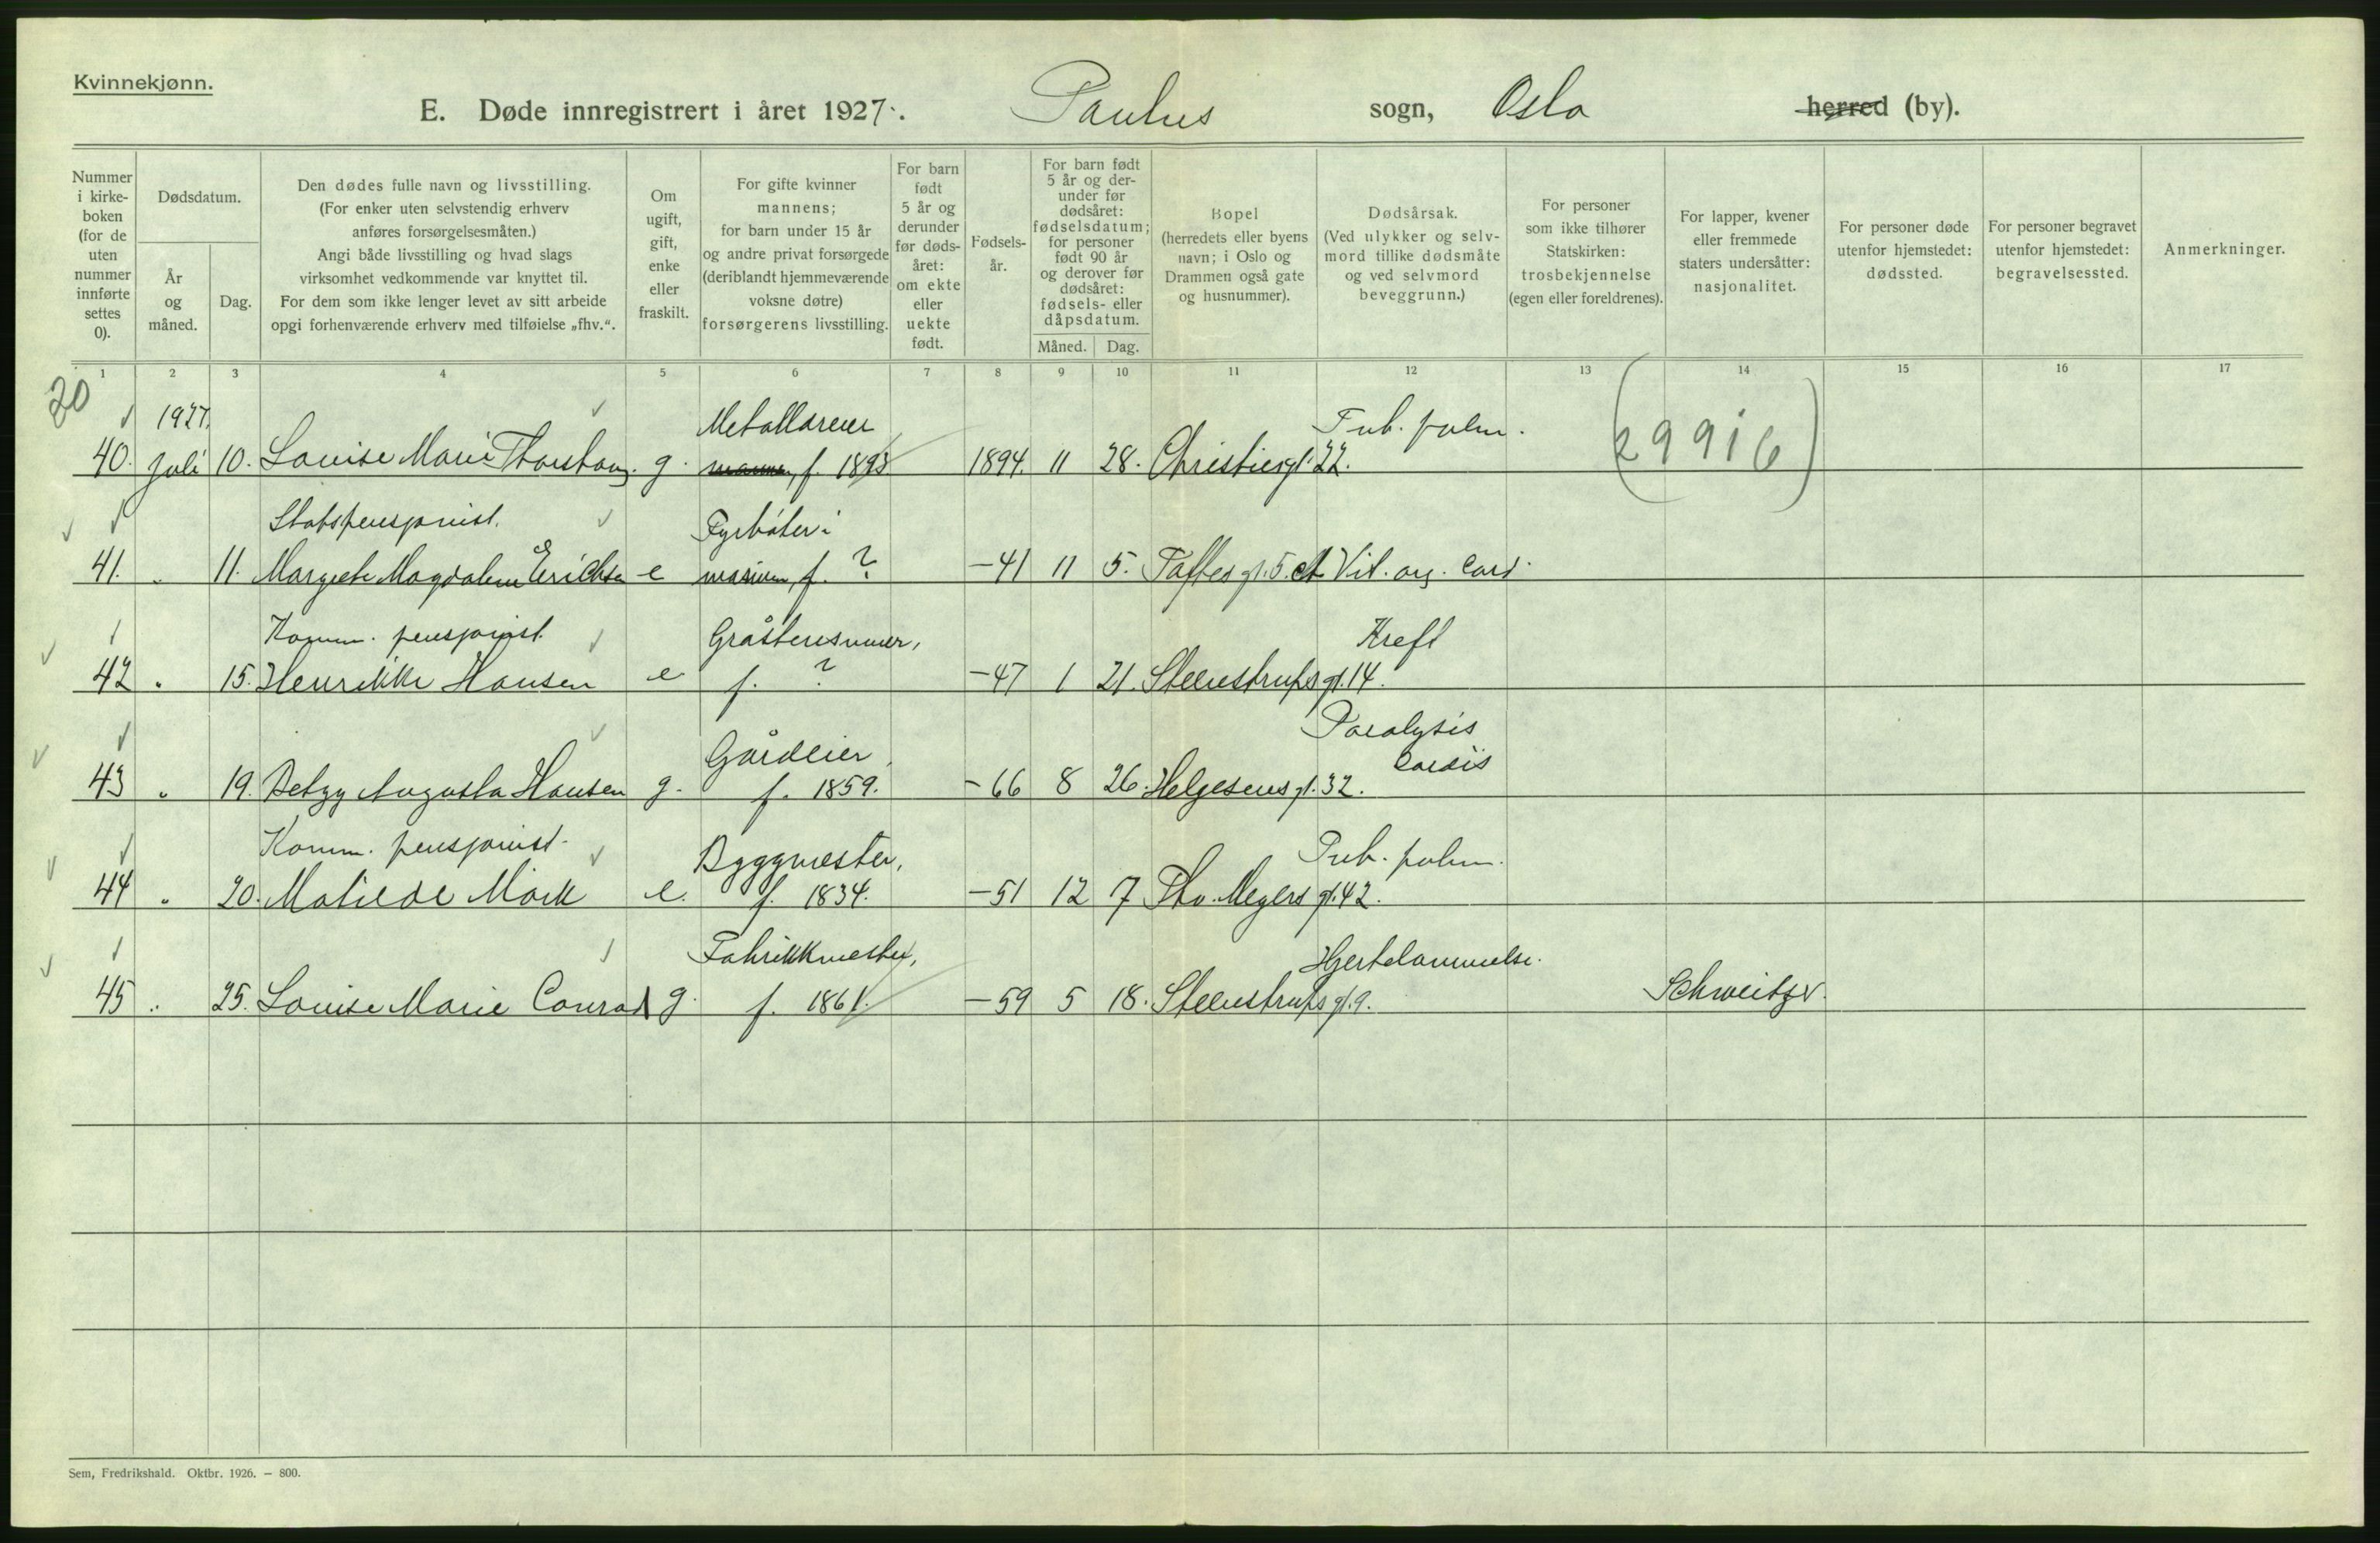 Kvinnekjønn.
E. Døde innregistrert i året 1927. Paulus sogn, Oslo herred (by).
Nummer i kirkeboken (for de uten nummer innførte settes 0).
Dødsdatum.
År og måned.
Dag.
Den dødes fulle navn og livsstilling.
(For enker uten selvstendig erhverv
anføres forsørgelsesmåten.)
Angi både livsstilling og hvad slags
virksomhet vedkommende var knyttet til.
For dem som ikke lenger levet av sitt arbeide
opgi forhenværende erhverv med tilføielse „fhv.“.
Om ugift, gift, enke eller fraskilt.
For gifte kvinner
mannens;
for barn under 15 år
og andre privat forsørgede
(deriblandt hjemmeværende
voksne døtre)
forsørgerens livsstilling.
For barn født 5 år og derunder før dødsåret: om ekte eller uekte født.
Fødselsår.
For barn født 5 år og derunder før dødsåret: fødselsdatum; for personer født 90 år og derover før dødsåret: fødsels- eller dåpsdatum.
Måned. Dag.
Bopel
(herredets eller byens
navn; i Oslo og
Drammen også gate
og husnummer).
Dødsårsak.
(Ved ulykker og selvmord tillike dødsmåte
og ved selvmord
beveggrunn.)
For personer
som ikke tilhører
Statskirken:
trosbekjennelse
(egen eller foreldrenes).
For lapper, kvener
eller fremmede
staters undersåtter:
nasjonalitet.
For personer døde
utenfor hjemstedet:
dødssted.
For personer begravet
utenfor hjemstedet:
begravelsessted.
Anmerkninger.
1 2 3 4 5 6 7 8 9 10 11 12 13 14 15 16 17
20
1927. Tub. pulm. (29916)
40. Juli 10. Louise Marie g. f. 1893 1894. 11 28. Christiesgt. 22.
Statspensjonist. Fyrbøter i
41. " 11. Margrete Magdalene Erichsen e f. ? -41 11 5. Toftes gt. 5. Vit. org. Card.
Komm. pensjonist. Kreft
42 " 15. Henrikke Hansen e f. ? -47 1 21. Steenstrups gt. 14.
Gårdeier, Paralysis
cordis
43 " 19. Betzy Augusta Hansen g. f. 1859. -66 8 26. Helgesens gt. 32.
Komm. pensjonist. Byggmester, Tub. pulm.
44 " 20. Matilde Mørk e. f. 1834. -51 12 7 Thv. Meyers gt. 42.
Fabrikkmester, Hjertelammelse.
45 " 25. Louise Marie Conrad g. f. 1861. -59 5 18. Steenstrups gt. 9. Schweitzer.
Sem, Fredrikshald. Oktbr. 1926. — 800.